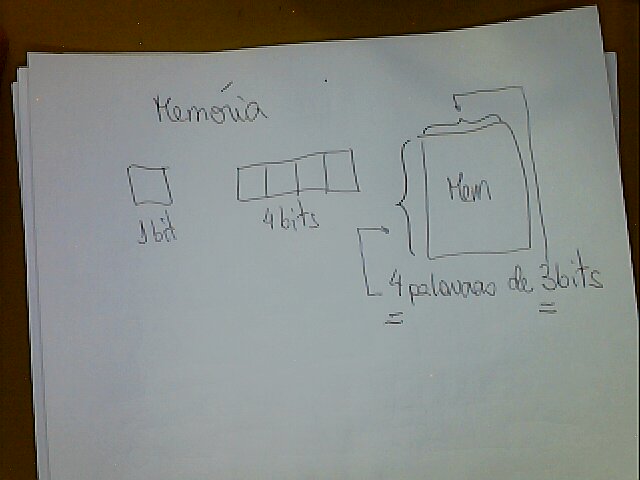 Memória
1bit
4bits
Mem
4 palavras de 3bits